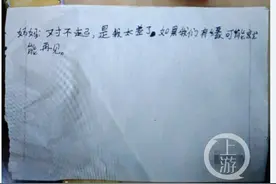 妈妈 对不起，是我太差了。如果我们有缘，可能就
能再见。
上游